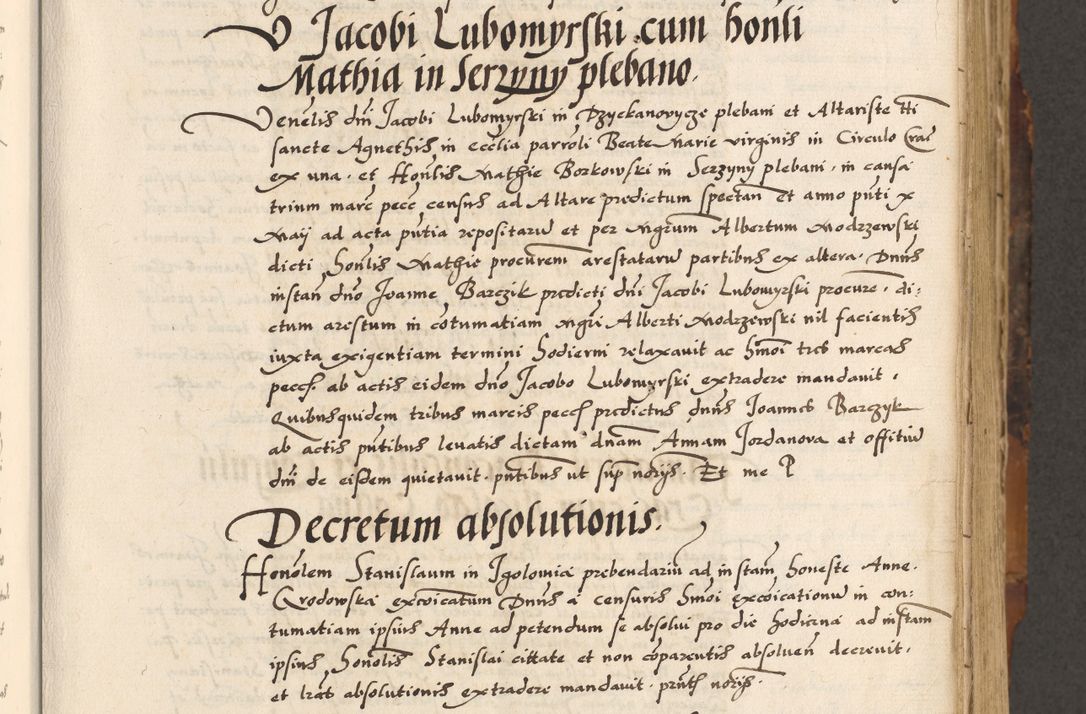 V Jacobi Lubomyrski cum honli
Mathia in Serzyny plebano.
Venelis dni Jacobi Lubomyrski in Dzyekanovycze plebani et Altariste tti
sancte Agnethis in ecclia parroli Beate Marie virginis in Circulo Crac
ex una . et Honlis Mathie Borkowski in Serzyny plebani . in causa
trium marc pecc census ad Altare predictum spectan Et anno pnti x
Maij ad acta pntia repositaru et per Mgrum Albertum Modrzewski
dicti honlis Mathie procurem arestataru partibus ex altera . Dnus
instan dno Joanne Barczik prdicti dni Jacobi Lubomyrski procure . di:
ctum arestum in cotumatiam Mgri Alberti Modrzewski nil facientis
iuxta exigentiam termini hodierni relaxavit ac hmoi tres marcas
pecc. ab actis eidem dno Jacobo Lubomyrski extradere mandavit .
Quibusquidem tribus marcis pecc prdictus dnus Joannes Barczyk
ab actis pntibus levatis dictam dnam Annam Jordanova et offitiu
dni de eisdem quietavit . pntibus ut sup norijs . Et me P
Decretum absolutionis.
Honolem Stanislaum in Igolomia prebendariu ad instam honeste Anne .
Grodowska excoicatum Dnus a censuris hmoi excoicationu in con:
tumatiam ipsius Anne ad petendum se absolvi pro die hodierna ad instam
ipsius honolis Stanislai cittate et non coparentis absolven decrevit .
et lras absolutionis extradere mandavit . prnts norijs .